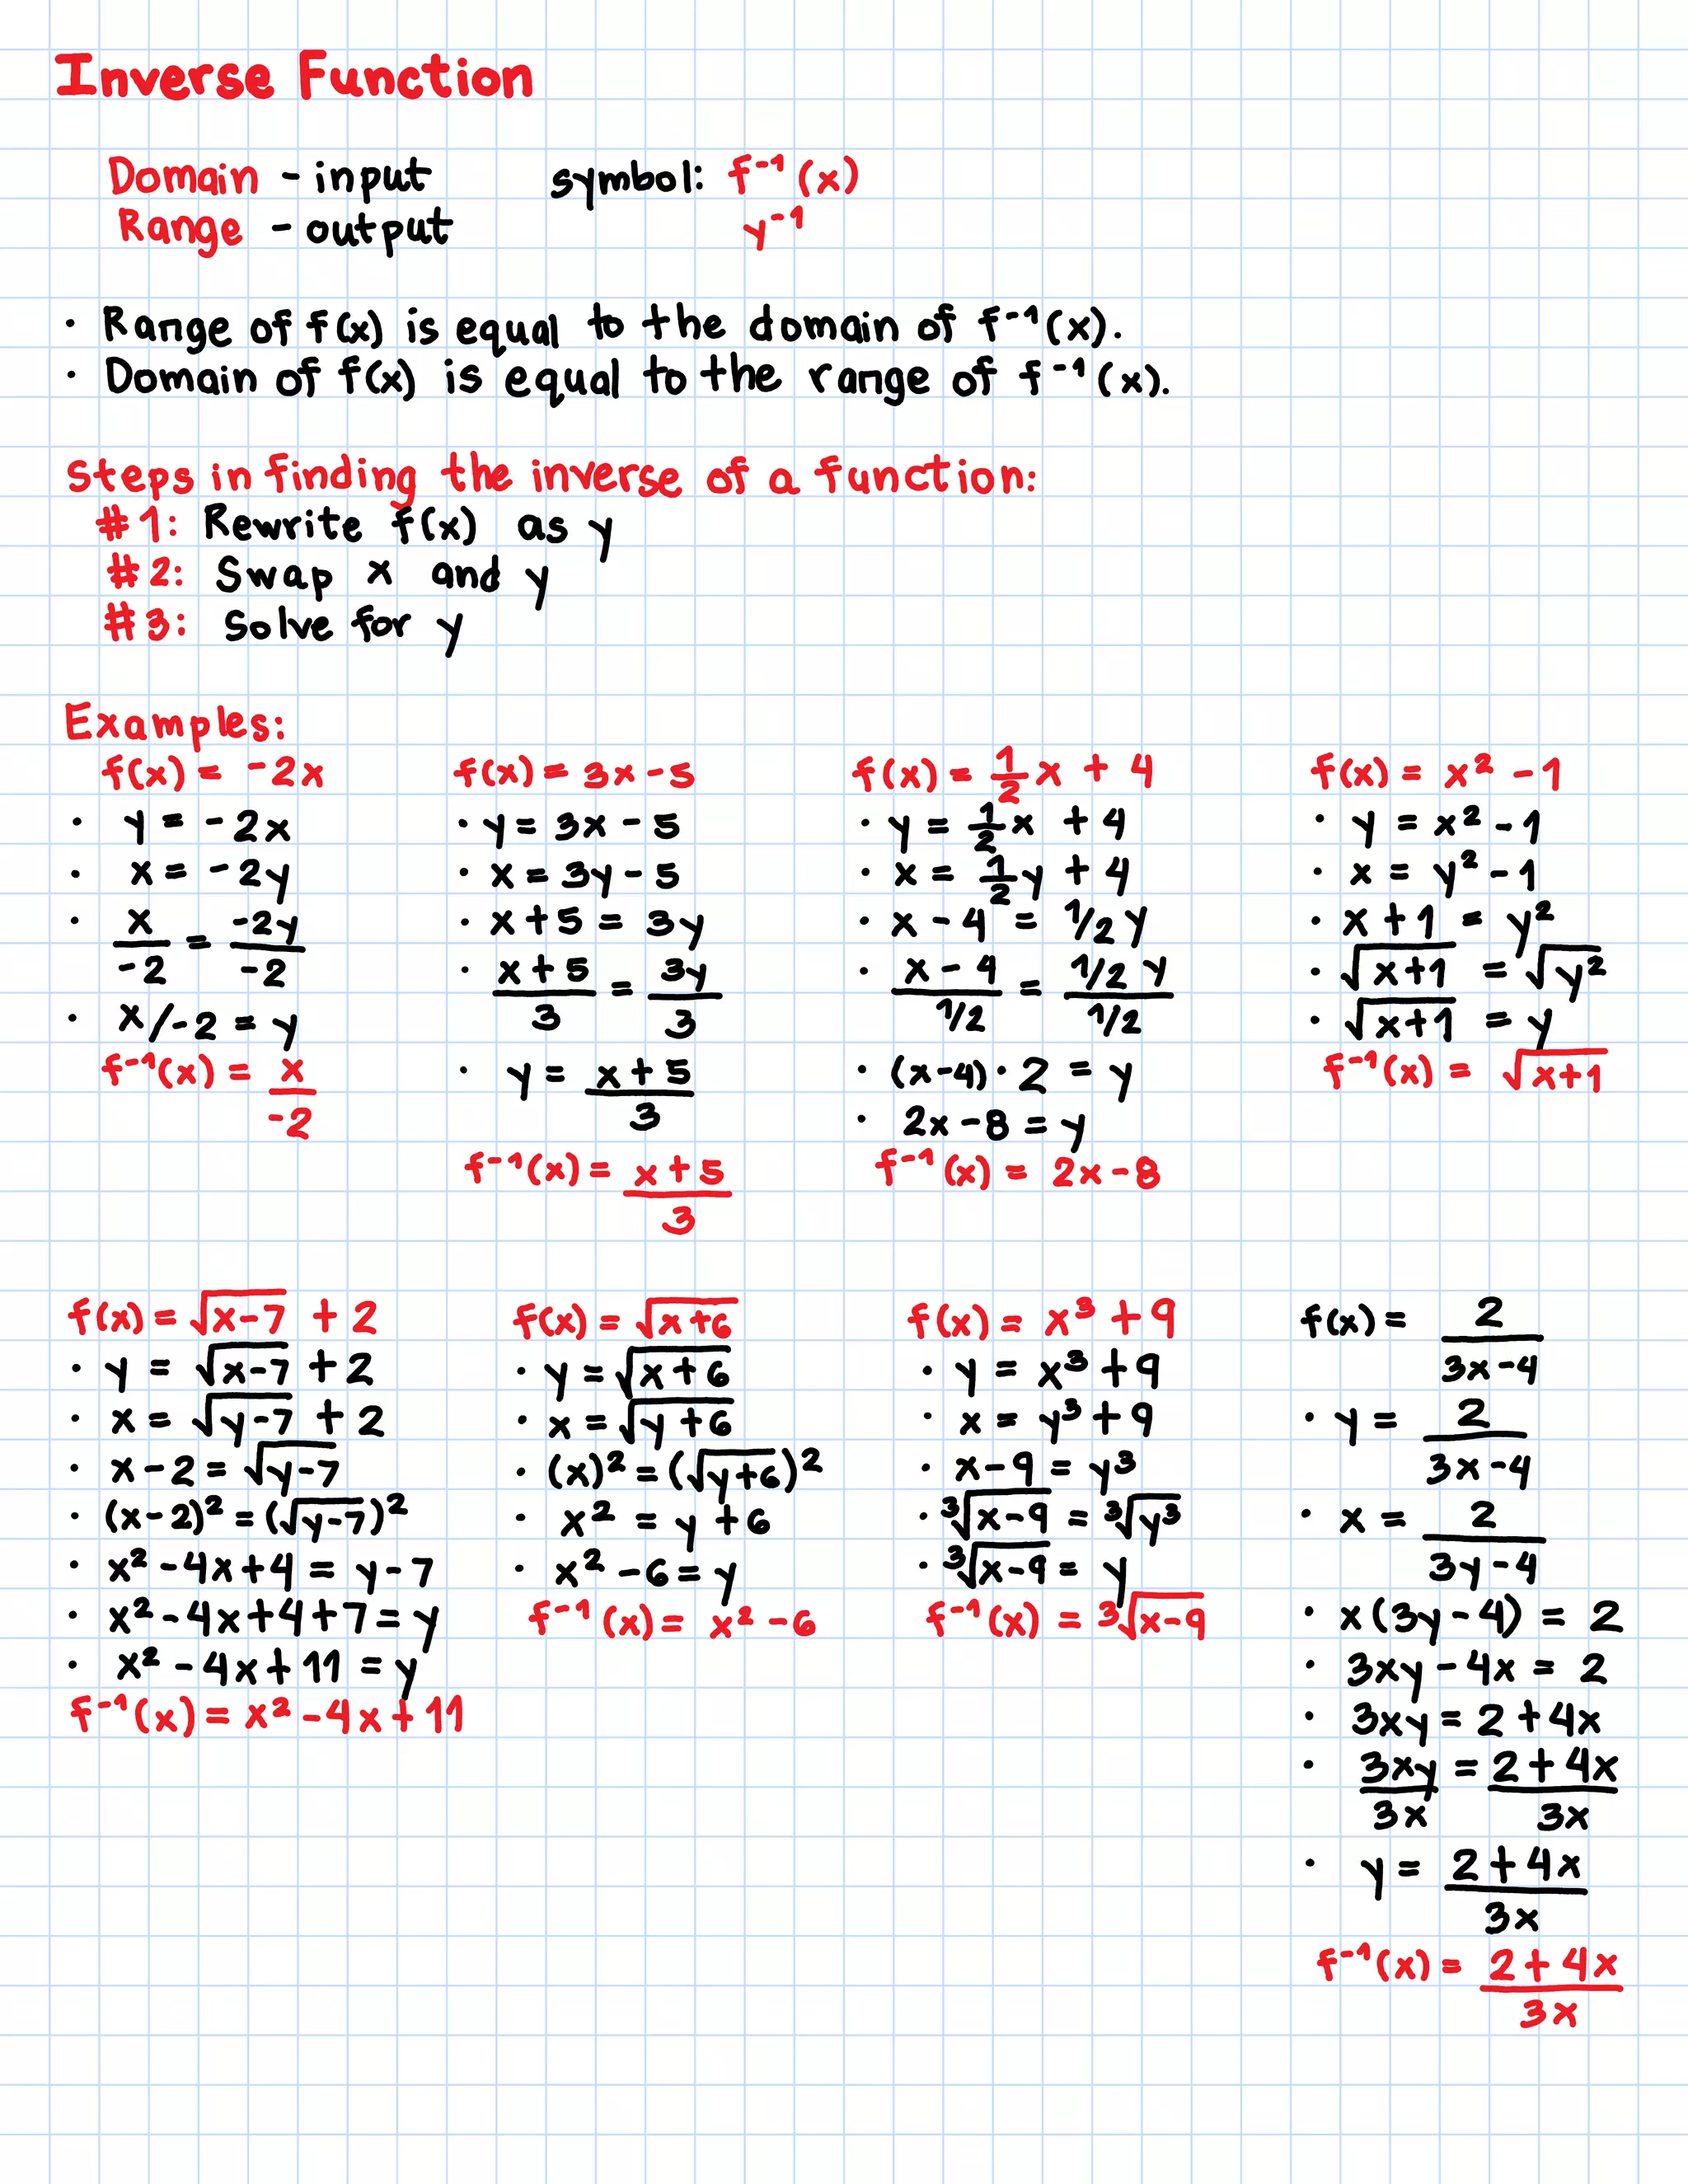 Inverse Function
Domain - input symbol: f⁻¹(x)
Range - output y⁻¹
· Range of f(x) is equal to the domain of f⁻¹(x).
· Domain of f(x) is equal to the range of f⁻¹(x).
Steps in finding the inverse of a function:
#1: Rewrite f(x) as y
#2: Swap x and y
#3: Solve for y
Examples:
f(x) = -2x
· y = -2x
· x = -2y
· x/-2 = -2y/-2
· x/-2 = y
f⁻¹(x) = x/-2
f(x) = 3x - 5
· y = 3x - 5
· x = 3y - 5
· x + 5 = 3y
· (x + 5)/3 = 3y/3
· y = (x + 5)/3
f⁻¹(x) = (x + 5)/3
f(x) = 1/2 x + 4
· y = 1/2 x + 4
· x = 1/2 y + 4
· x - 4 = 1/2 y
· (x - 4)/(1/2) = (1/2 y)/(1/2)
· (x-4) · 2 = y
· 2x - 8 = y
f⁻¹(x) = 2x - 8
f(x) = x² - 1
· y = x² - 1
· x = y² - 1
· x + 1 = y²
· √(x+1) = √(y²)
· √(x+1) = y
f⁻¹(x) = √(x+1)
f(x) = √(x-7) + 2
· y = √(x-7) + 2
· x = √(y-7) + 2
· x - 2 = √(y-7)
· (x-2)² = (√(y-7))²
· x² - 4x + 4 = y - 7
· x² - 4x + 4 + 7 = y
· x² - 4x + 11 = y
f⁻¹(x) = x² - 4x + 11
f(x) = √(x+6)
· y = √(x+6)
· x = √(y+6)
· (x)² = (√(y+6))²
· x² = y + 6
· x² - 6 = y
f⁻¹(x) = x² - 6
f(x) = x³ + 9
· y = x³ + 9
· x = y³ + 9
· x - 9 = y³
· ³√(x-9) = ³√(y³)
· ³√(x-9) = y
f⁻¹(x) = ³√(x-9)
f(x) = 2/(3x-4)
· y = 2/(3x-4)
· x = 2/(3y-4)
· x(3y-4) = 2
· 3xy - 4x = 2
· 3xy = 2 + 4x
· 3xy/3x = (2 + 4x)/3x
· y = (2 + 4x)/3x
f⁻¹(x) = (2 + 4x)/3x